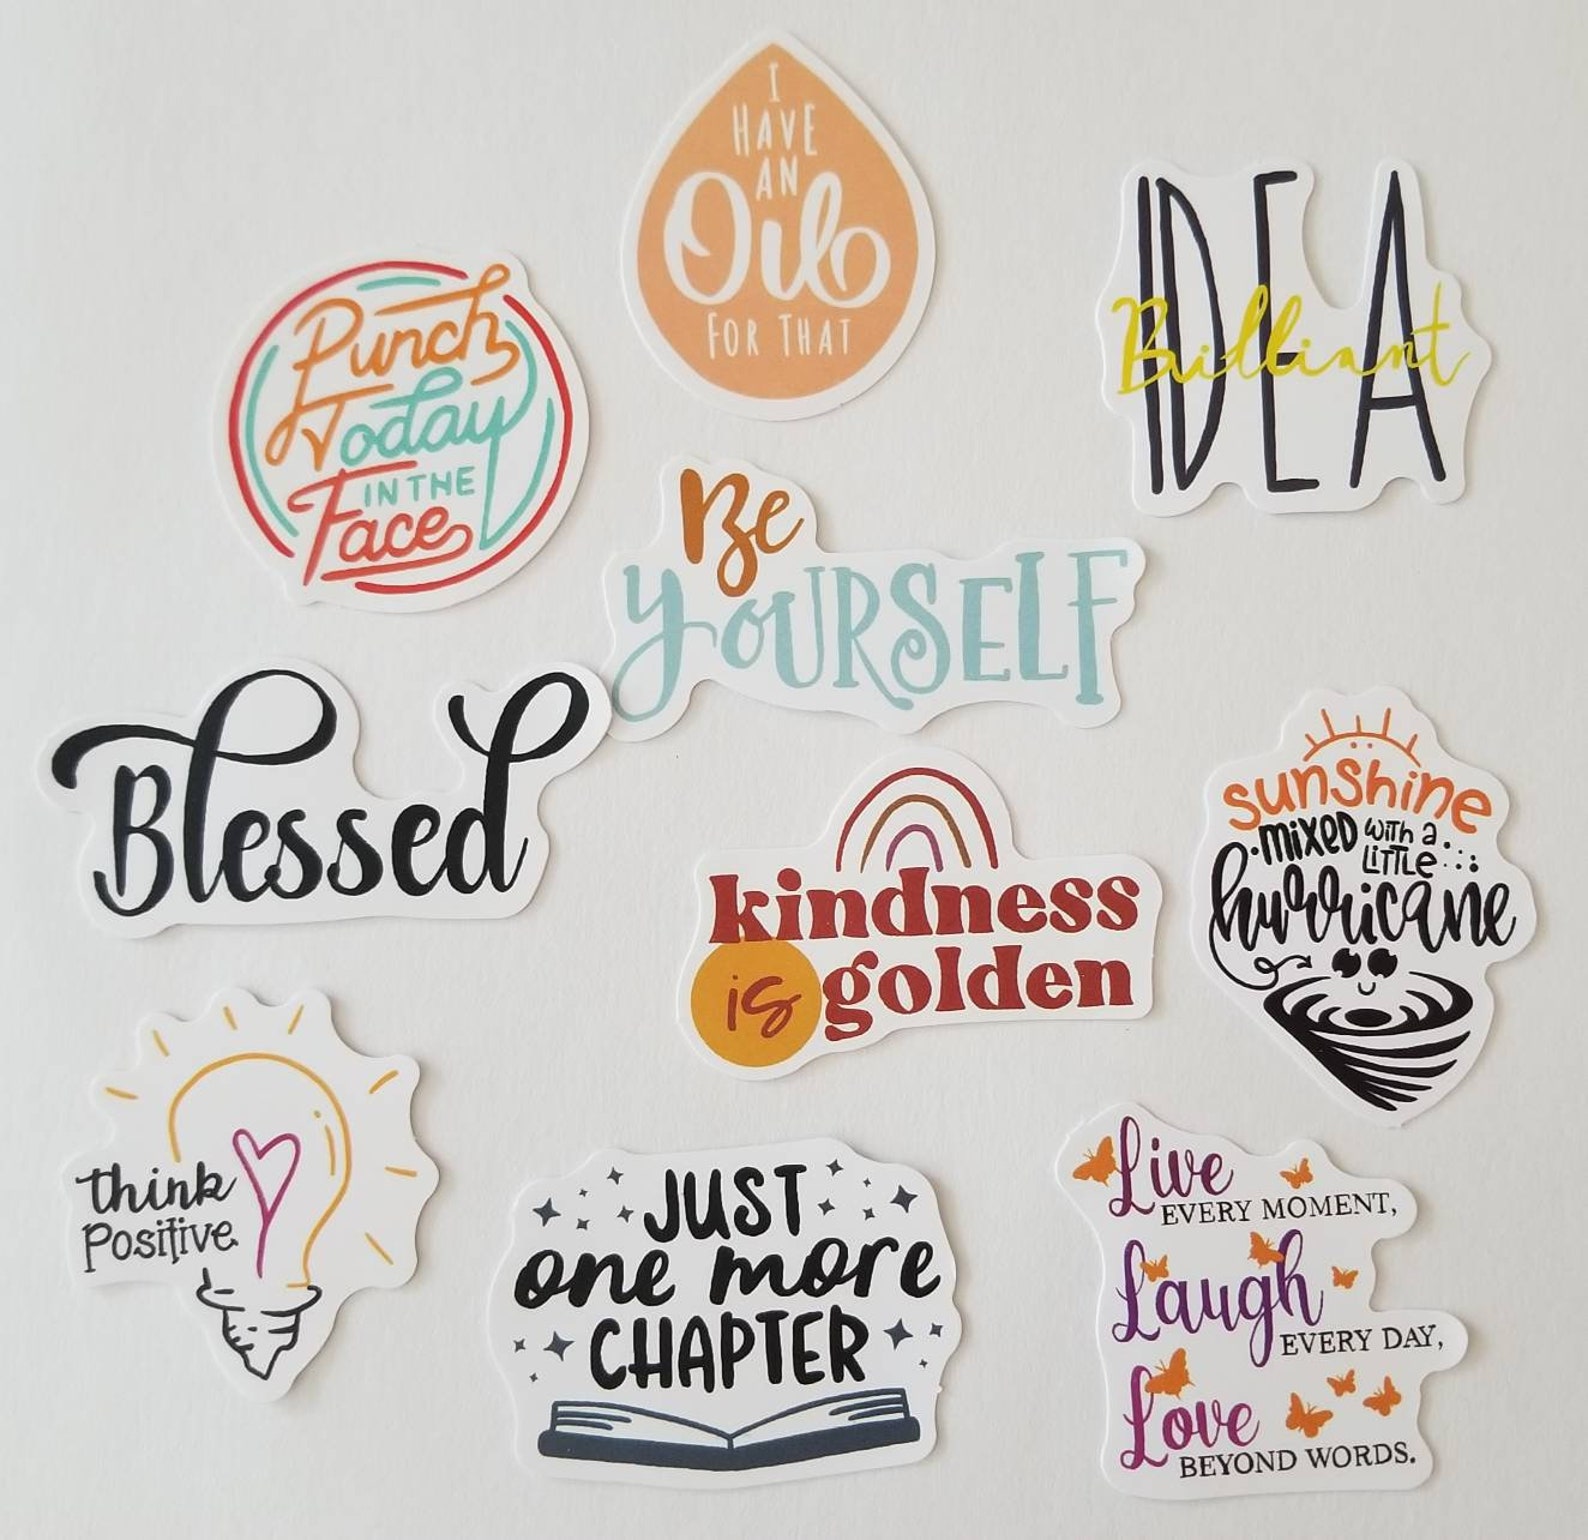 I
HAVE
AN
Oil
FOR THAT
Punch
Today
IN THE
Face
IDEA
Brilliant
Be
yOURSELF
Blessed
kindness
is golden
sunshine
mixed with a
little
hurricane
think
positive
JUST
one more
CHAPTER
Live
EVERY MOMENT,
Laugh
EVERY DAY,
Love
BEYOND WORDS.